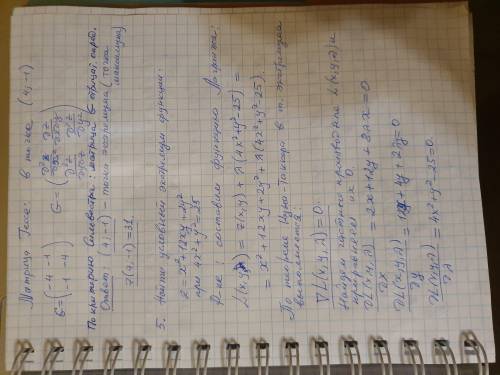 Матрица Гессе: в точке (4;-1)
G=(-4 -1
-1 -4) G=(∂²z/∂x² ∂²z/∂x∂y
∂²z/∂x∂y ∂²z/∂y²)
По критерию Сильвестра: матрица G отрицат. опред.
Ответ: (4;-1) - точка экстремума (точка
максимума)
z(4;-1)=31
5. Найти условный экстремум функции:
z=x²+12xy+2y²
при 4x²+y²=25
Р-ие: составим функцию Лагранжа:
L(x,y,λ)=z(x,y)+λ(4x²+y²-25)=
=x²+12xy+2y²+λ(4x²+y²-25).
По теореме Куна-Таккера в т. экстремума
выполняется:
∇L(x,y,λ)=0.
Найдём частные производные L(x,y,λ) и
приравняем их 0.
∂L(x,y,λ)/∂x=2x+12y+8λx=0
∂L(x,y,λ)/∂y=12x+4y+2λy=0
∂L(x,y,λ)/∂λ=4x²+y²-25=0